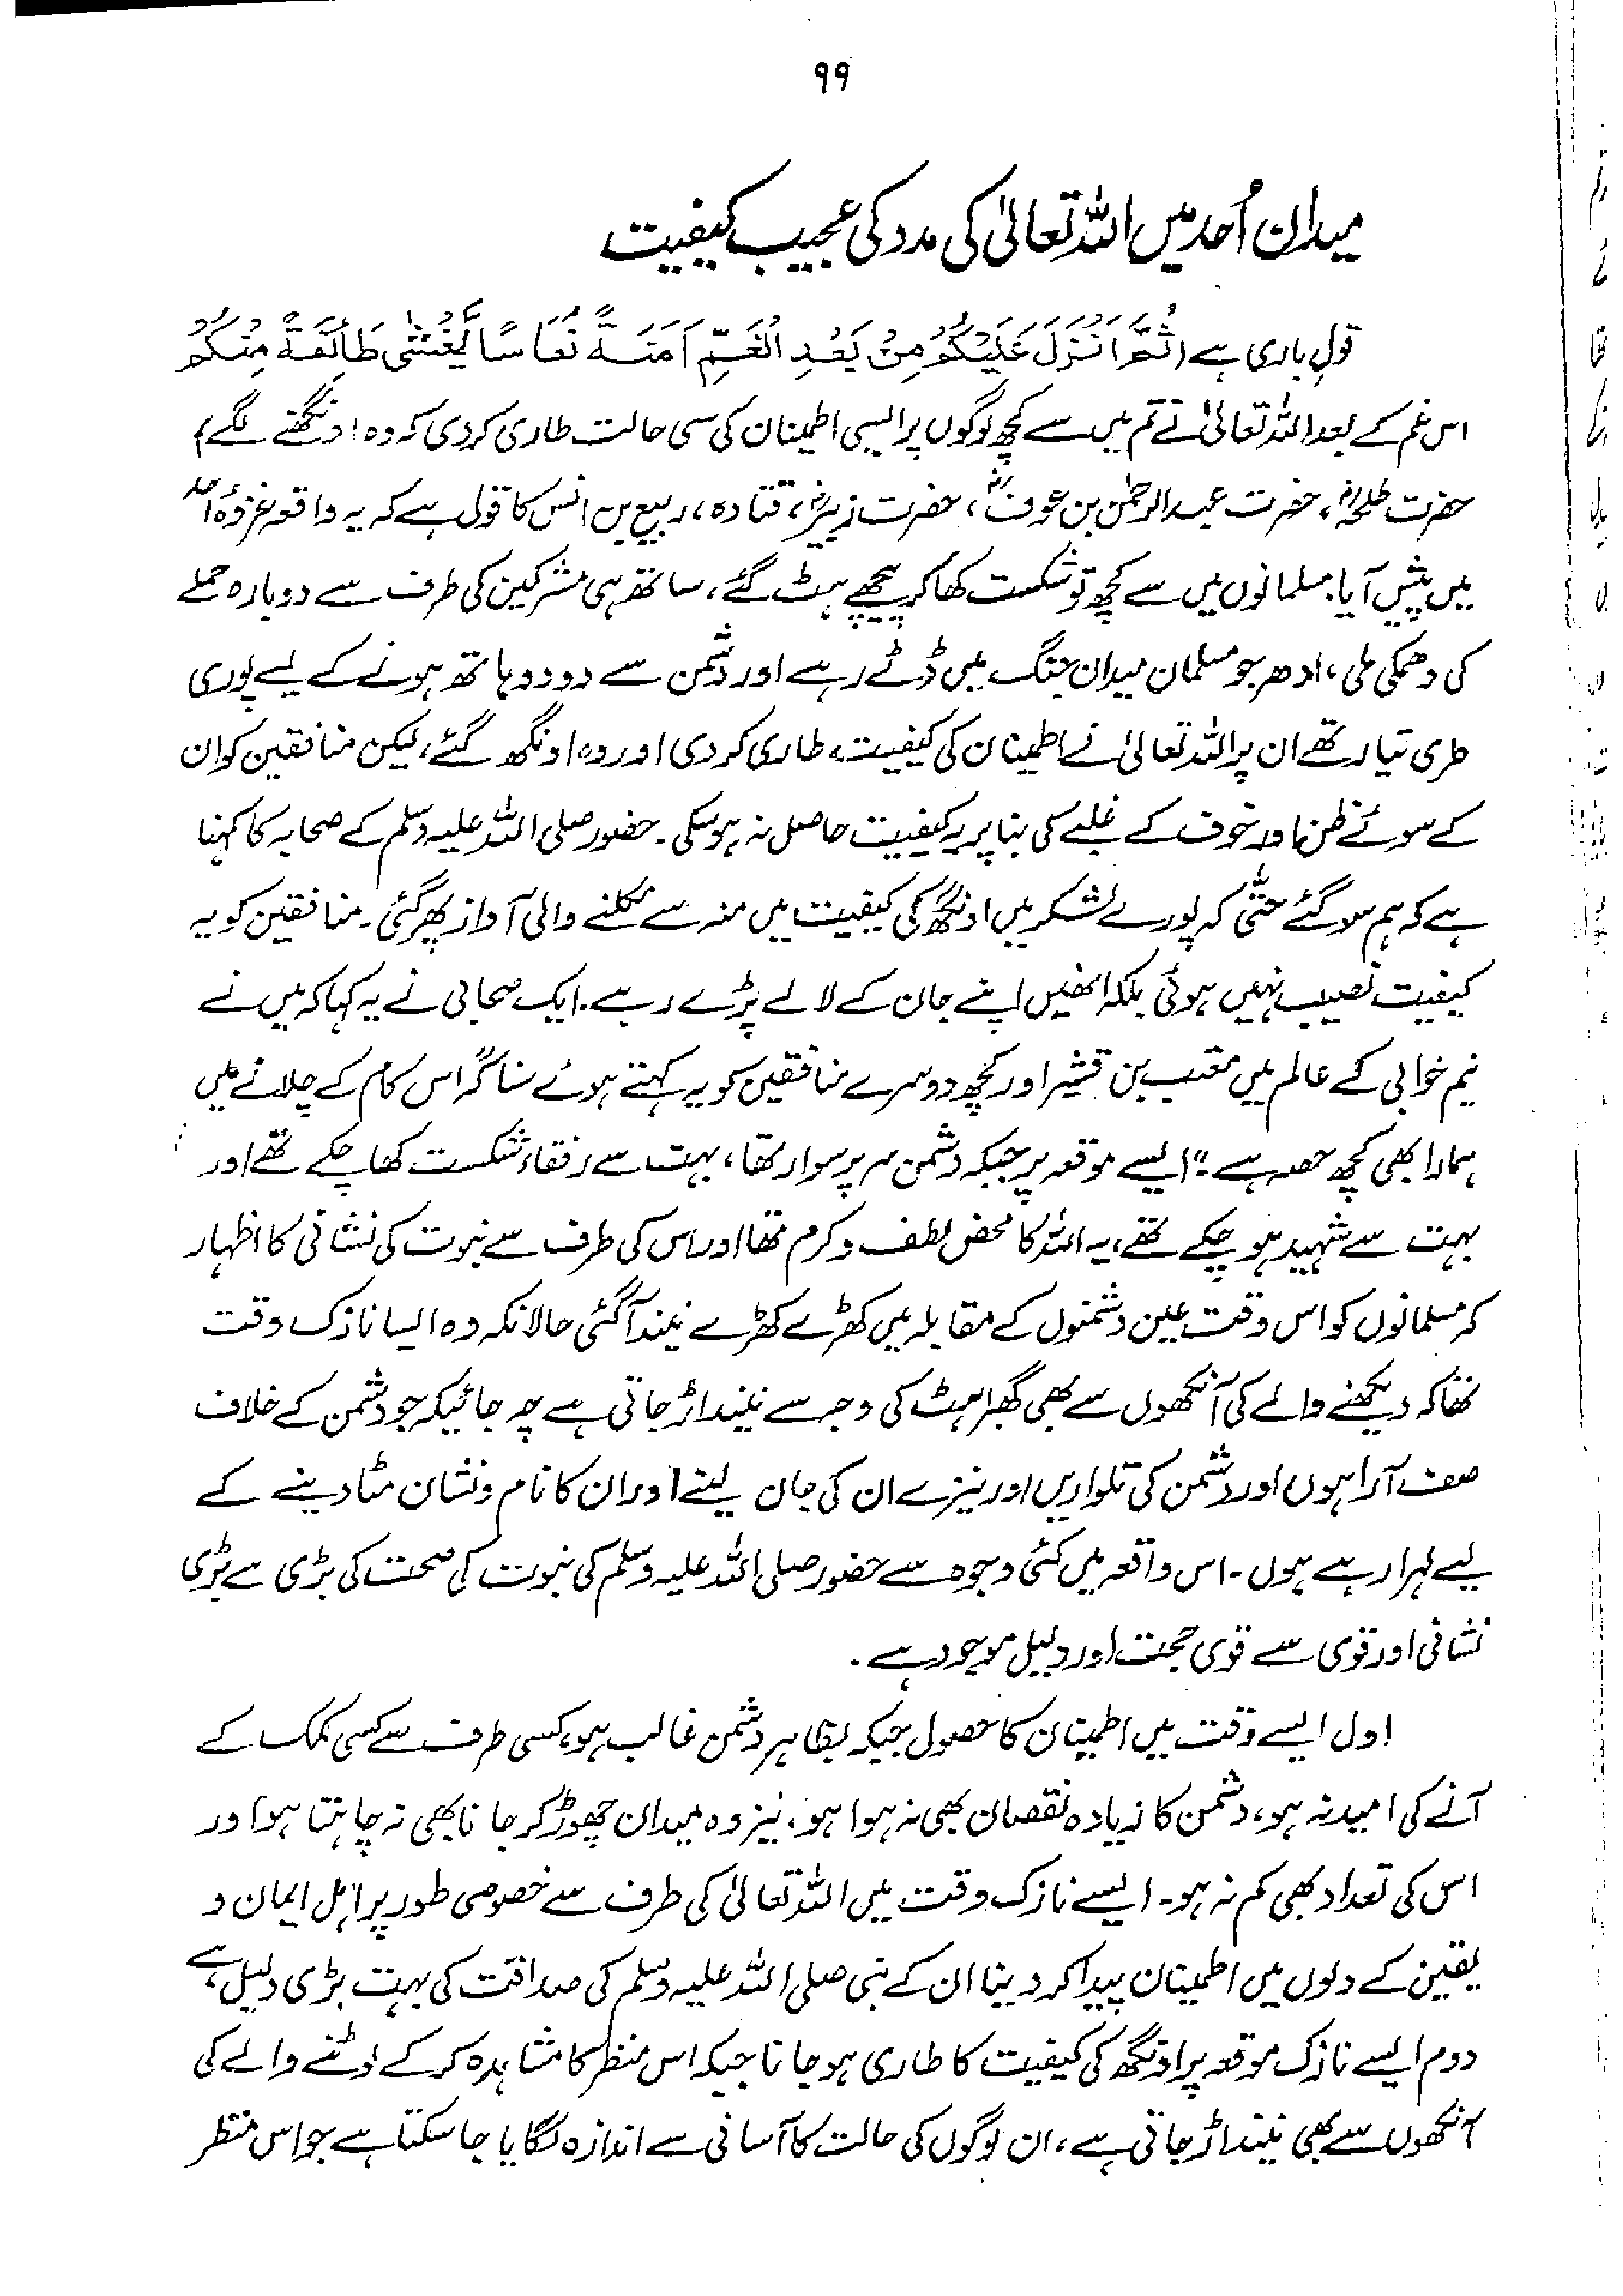 ۹۹
میدان اُحد میں اللہ تعالیٰ کی مدد کی عجیب کیفیت
قولِ باری ہے (ثُمَّ اَنْزَلَ عَلَیْکُمْ مِنْ بَعْدِ الْغَمِّ اَمَنَةً نُعَاسًا یَّغْشٰی طَائِفَةً مِنْکُمْ
اس غم کے بعد اللہ تعالیٰ نے تم میں سے کچھ لوگوں پر ایسی اطمینان کی سی حالت طاری کر دی کہ وہ اونگھنے لگے)
حضرت طلحہؓ، حضرت عبدالرحمٰن بن عوفؓ، حضرت زبیرؓ، قتادہ، ربیع بن انس کا قول ہے کہ یہ واقعہ غزوۂ احد
میں پیش آیا۔ مسلمانوں میں سے کچھ تو شکست کھا کر پیچھے ہٹ گئے، ساتھ ہی مشرکین کی طرف سے دوبارہ حملے
کی دھمکی ملی، ادھر جو مسلمان میدان جنگ میں ڈٹے رہے اور دشمن سے دو دو ہاتھ ہونے کے لیے پوری
طری تیار تھے ان پر اللہ تعالیٰ نے اطمینان کی کیفیت طاری کر دی اور وہ اونگھ گئے، لیکن منافقین کو ان
کے سوئے ظن اور خوف کے غلبے کی بنا پر یہ کیفیت حاصل نہ ہو سکی۔ حضور صلی اللہ علیہ وسلم کے صحابہ کا کہنا
ہے کہ ہم سو گئے حتّٰی کہ پورے لشکر میں اونگھ کی کیفیت میں منہ سے نکلنے والی آواز پھر گئی۔ منافقین کو یہ
کیفیت نصیب نہیں ہوئی بلکہ انھیں اپنے جان کے لالے پڑے رہے۔ ایک صحابی نے یہ کہا کہ میں نے
نیم خوابی کے عالم میں معتب بن قشیر اور کچھ دوسرے منافقین کو یہ کہتے ہوئے سنا کہ "اس کام کے چلانے میں
ہمارا بھی کچھ حصہ ہے"۔ ایسے موقعہ پر جبکہ دشمن سر پر سوار تھا، بہت سے رفقاء شکست کھا چکے تھے اور
بہت سے شہید ہو چکے تھے، یہ اللہ کا محض لطف و کرم تھا اور اس کی طرف سے نبوت کی نشانی کا اظہار
کہ مسلمانوں کو اس وقت عین دشمنوں کے مقابلہ میں کھڑے کھڑے نیند آ گئی حالانکہ وہ ایسا نازک وقت
تھا کہ دیکھنے والے کی آنکھوں سے بھی گھبراہٹ کی وجہ سے نیند اڑ جاتی ہے چہ جائیکہ جو دشمن کے خلاف
صف آرا ہوں اور دشمن کی تلواریں اور نیزے ان کی جان لینے اور ان کا نام و نشان مٹا دینے کے
لیے لہرا رہے ہوں۔ اس واقعہ میں کئی وجوہ سے حضور صلی اللہ علیہ وسلم کی نبوت کی صحت کی بڑی سے بڑی
نشانی اور قوی سے قوی حجت اور دلیل موجود ہے۔
اول ایسے وقت میں اطمینان کا حصول جبکہ بظاہر دشمن غالب ہو، کسی طرف سے کسی کمک کے
آنے کی امید نہ ہو، دشمن کا زیادہ نقصان بھی نہ ہوا ہو، نیز وہ میدان چھوڑ کر جانا بھی نہ چاہتا ہو اور
اس کی تعداد بھی کم نہ ہو۔ ایسے نازک وقت میں اللہ تعالیٰ کی طرف سے خصوصی طور پر اہل ایمان و
یقین کے دلوں میں اطمینان پیدا کر دینا ان کے نبی صلی اللہ علیہ وسلم کی صداقت کی بہت بڑی دلیل ہے،
دوم ایسے نازک موقعہ پر اونگھ کی کیفیت کا طاری ہو جانا جبکہ اس منظر کا مشاہدہ کر کے لوٹنے والے کی
آنکھوں سے بھی نیند اڑ جاتی ہے، ان لوگوں کی حالت کا آسانی سے اندازہ لگایا جا سکتا ہے جو اس منظر